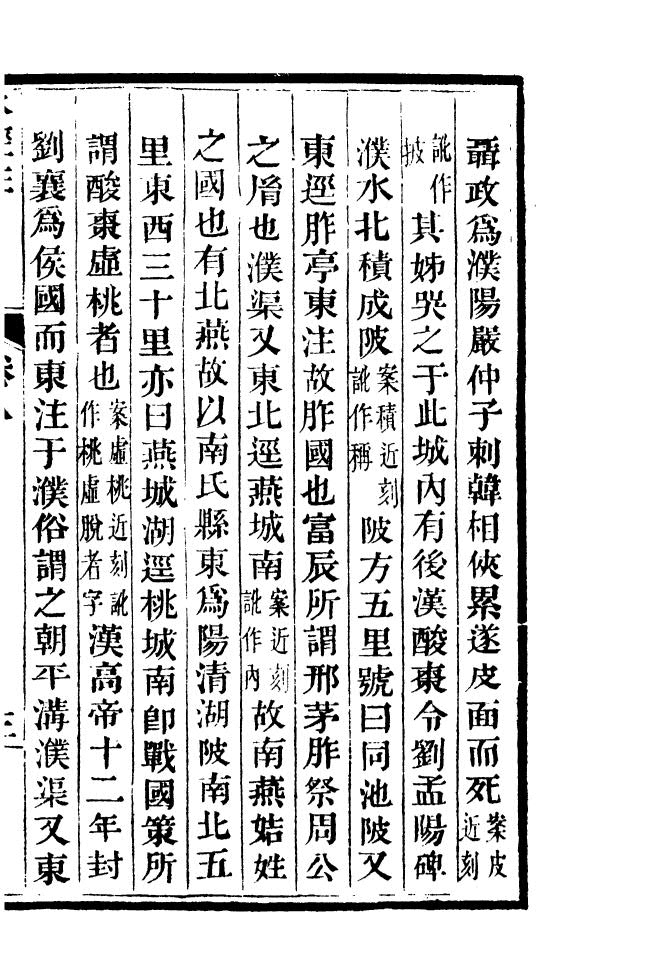 聶政爲濮陽嚴仲子刺韓相俠累遂皮面而死案皮近刻
訛作披其姊哭之于此城內有後漢酸棗令劉孟陽碑
濮水北積成陂案積近刻訛作稱陂方五里號曰同池陂又
東逕胙亭東注故胙國也富辰所謂邢茅胙祭周公
之𦙍也濮渠又東北逕燕城南案近刻訛作內故南燕姞姓
之國也有北燕故以南氏縣東爲陽清湖陂南北五
里東西三十里亦曰燕城湖逕桃城南卽戰國策所
謂酸棗虛桃者也案虛桃近刻訛作桃虛脫者字漢高帝十二年封
劉襄爲侯國而東注于濮俗謂之朝平溝濮渠又東